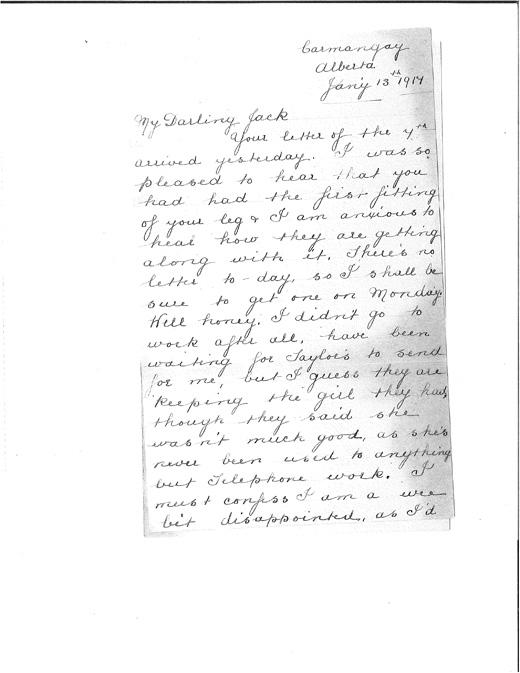 Carmangay
Alberta
Jan'y 13th 1917
My Darling Jack
Your letter of the 7th
arrived yesterday. I was so
pleased to hear that you
had had the first fitting
of your leg & I am anxious to
hear how they are getting
along with it. There's no
letter to-day, so I shall be
sure to get one on Monday.
Well honey, I didn't go to
work after all, have been
waiting for Taylors to send
for me, but I guess they are
keeping the girl they had,
though they said she
wasn't much good, as she's
never been used to anything
but Telephone work. I
must confess I am a wee
bit disappointed, as I'd